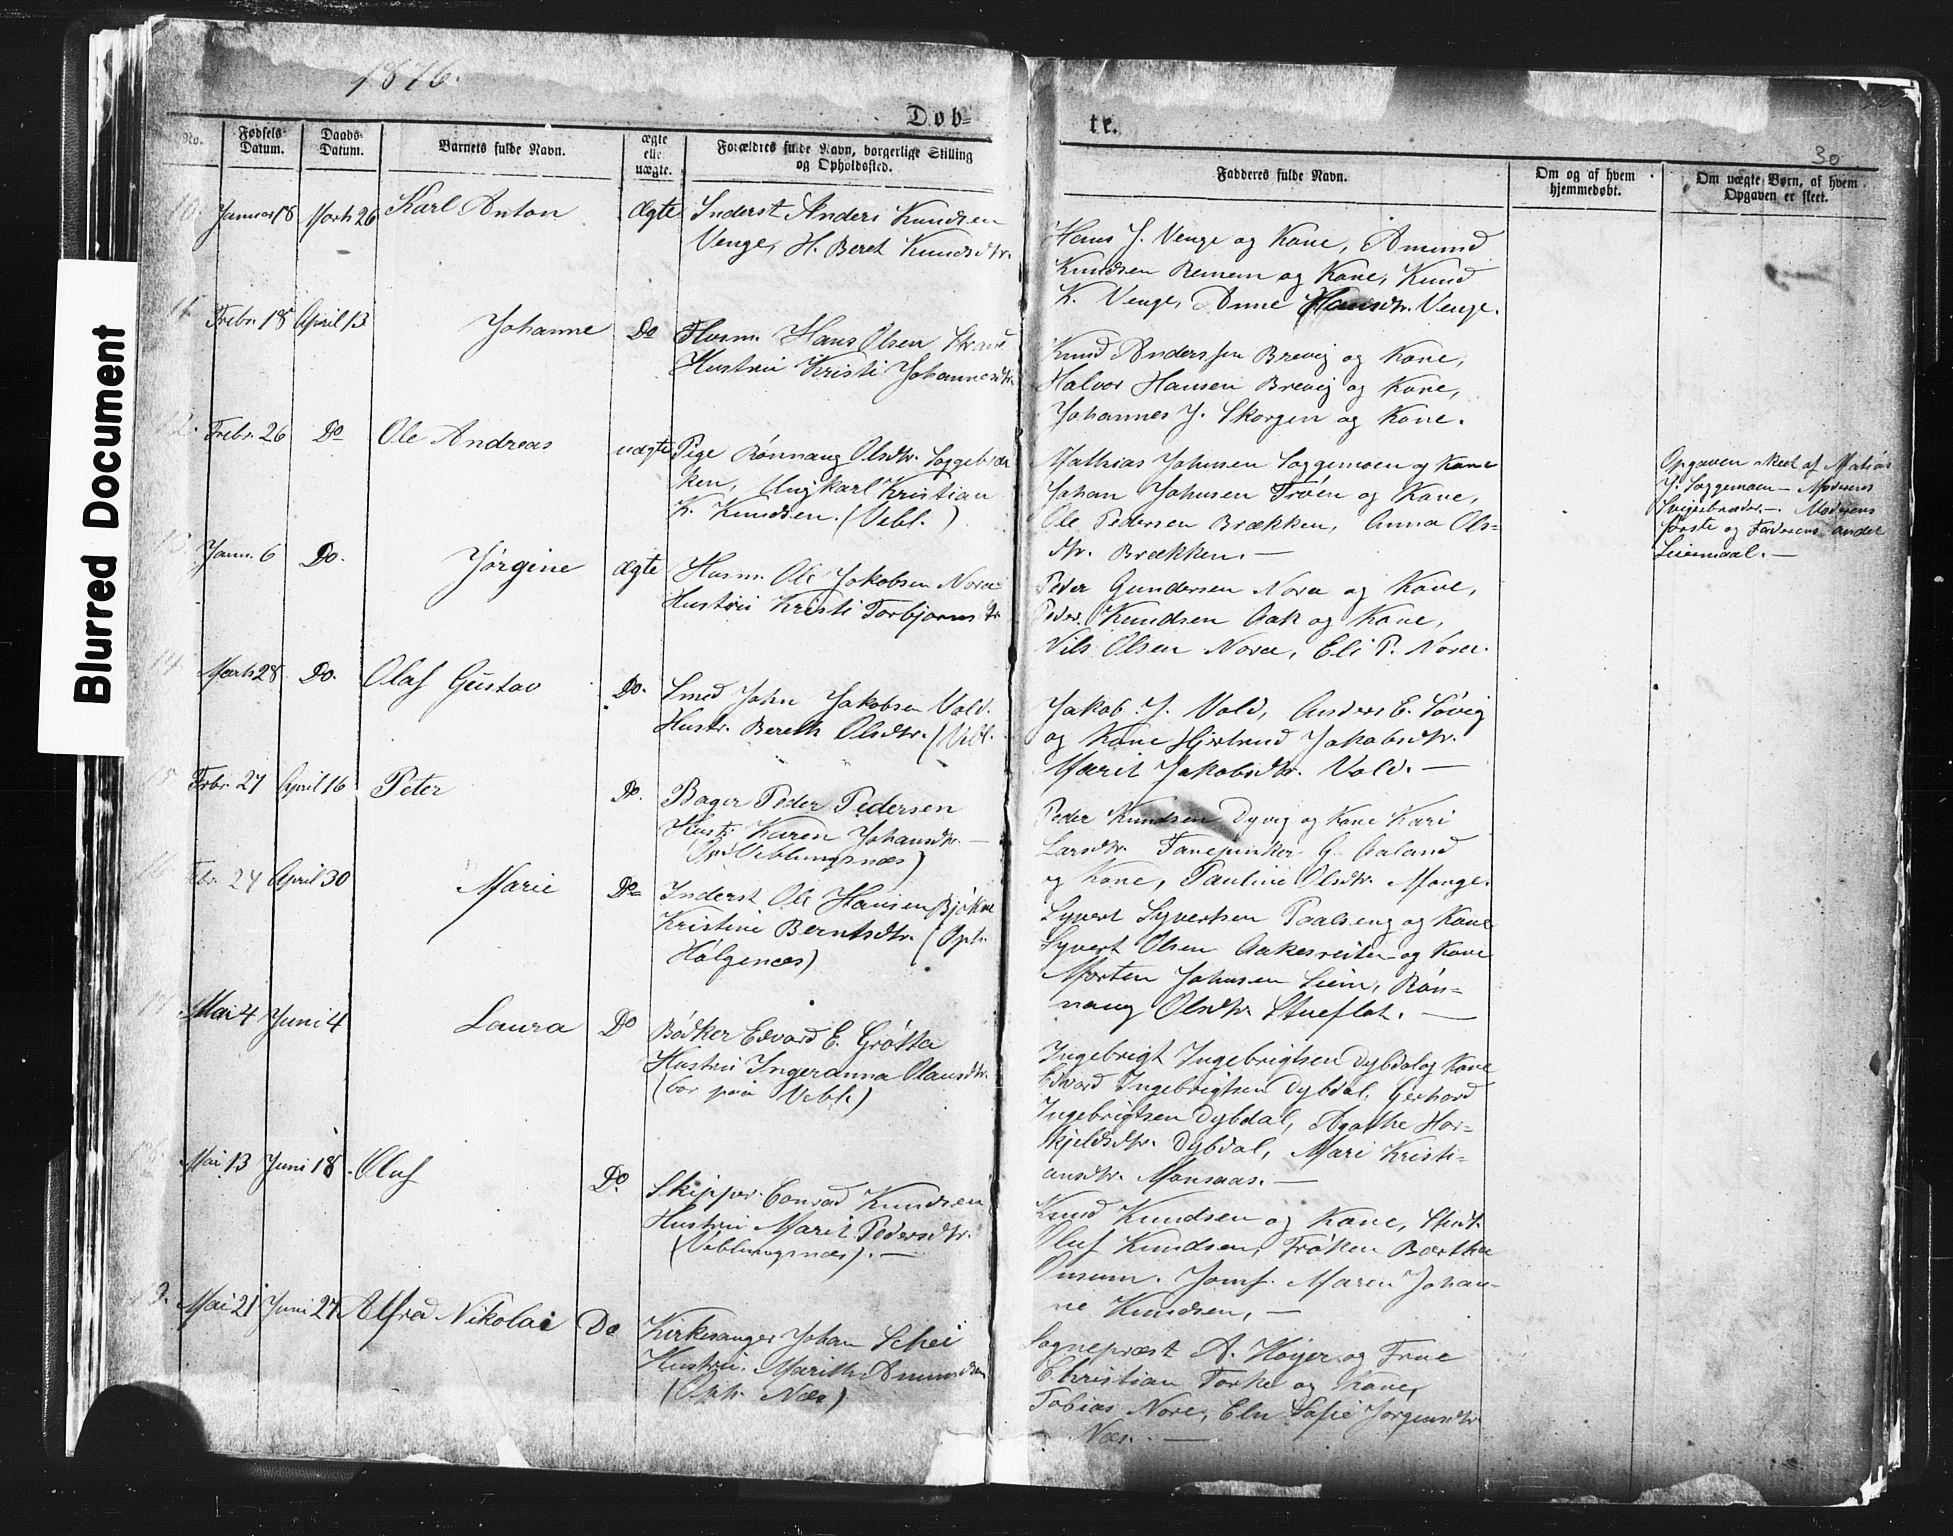 Blurred Document
1876.
Døb-
No.
Fødsels-
Datum.
Daabs-
Datum.
Barnets fulde Navn.
ægte
eller
uægte.
Forældres fulde Navn, borgerlige Stilling
og Opholdssted.
10. Januar 18 Marts 26 Karl Anton Ægte Inderst Anders Knudsen
Venge, H. Beret Knudsdtr.
11. Febr. 18 April 13 Johanne Do Husm. Hans Olsen
Hustru Kristi Johannesdtr.
12. Febr. 26 Do Ole Andreas uægte Pige Rønnaug Olsdtr. Soggebræk
ken, Ungkarl Kristian
K. Knudsen. (Vebl.)
13 Janr. 6 Do. Jørgine Ægte Husm. Ole Jakobsen Nora
Hustru Kristi Torbjørnsdtr
14 Marts 28 Do. Olaf Gustav Do. Smed John Jakobsen Vold.
Hustr. Bereth Olsdtr. (Vebl.
15 Febr. 27 April 16 Peter Do. Bager Peder Pedersen
Hust. Karen Johansdtr. —
(Veblungsnæs)
16 Febr. 24 April 30 Marie Do Inderst Ole Hansen
Kristine Berntsdtr. (Oph.
Hølgenes)
17 Mai 4 Juni 4 Laura Do Bødker Edvard E. Grøtta
Hustru Ingeranna Olausdtr.
(bor paa Vebl.)
18. Mai 13 Juni 18. Oluf Do. Skipper Conrad Knudsen
Hustru Marit Pedersdtr.
(Veblungsnæs). —
19. Mai 21 Juni 27 Alfred Nikolai Do Kirkesanger Johan Schei
Hustru. Marith
(Oph. Næs)
te.
30
Fadderes fulde Navn.
Om og af hvem
hjemmedøbt.
Om uægte Børn, af hvem
Opgaven er skeet.
Hans J. Venge og Kone, Amund
Knudsen Remem og Kone, Knud
K. Venge, Anne Hansdtr. Venge.
Knud Anderssen Brevig og Kone,
Halvor Hansen Brevig og Kone,
Johannes J. Skorgen og Kone.
Mathias Johnsen Soggemoen og Kone
Johan Johnsen Trøen og Kone,
Ole Pedersen Brækken, Anna Ols-
dtr. Brækken. —
Opgaven skeet af Matias
J. Soggemoen — Moderens
Svigerbroder. — Moderens
første og Faderens andet
Leiermaal. —
Peder Gundersen Nora og Kone,
Peder Knudsen Aak og Kone,
Nils Olsen Nora, Eli P. Nora.
Jakob J. Vold, Anders E. Søvig
og Kone Hjertrud Jakobsdtr.
Marit Jakobsdtr. Vold. —
Peder Knudsen Dyvig og Kone Kari
Larsdtr. G. Aaland
og Kone, Pauline Olsdtr. Monge.
Syvert Syvertsen Paalseng og Kone
Syvert Olsen Aakesreiten og Kone
Morten Johnsen Seim, Røn-
naug Olsdtr. Stueflot. —
Ingebrigt Ingebrigtsen Dybdal og Kone
Edvard Ingebrigtsen Dybdal, Gerhard
Ingebrigtsen Dybdal, Agathe Hor-
skjeldsdtr. Dybdal, Mari Kristi-
ansdtr. Monsaas. —
Knud Knudsen og Kone, Stud.
Oluf Knudsen, Frøken Bærtha
Onsum. Jomf. Maren Johan-
ne Knudsen, —
Sognepræst A. Høyer og Frue
Christian Torhe og Kone,
Tobias Nore, Eln Sofie Jørgensdtr
Næs. —